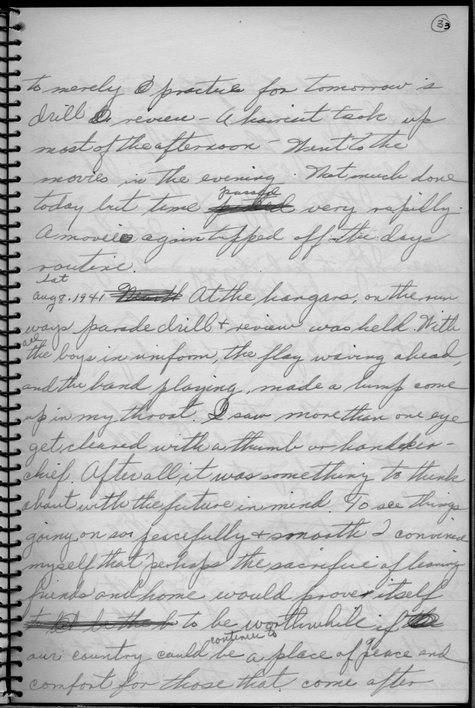 33
to merely practice for tomorrow's
drill & review - A haircut took up
most of the afternoon - Went to the
movies in the evening. Not much done
passed
today but time very rapidly.
A movie again topped off the days
routine.
Sat
Aug 8. 1941 At the hangars, on the run
9
ways parade drill & review was held. With
all
the boys in uniform, the flag waving ahead,
and the band playing, made a lump come
up in my throat. I saw more than one eye
get cleared with a thumb or hander-
chief. After all, it was something to think
about with the future in mind. To see things
going on so peacefully & smooth I convinced
myself that perhaps the sacrifice of leaving
friends and home would prove itself
to be worthwhile if
continue to
our country could be a place of peace and
comfort for those that come after